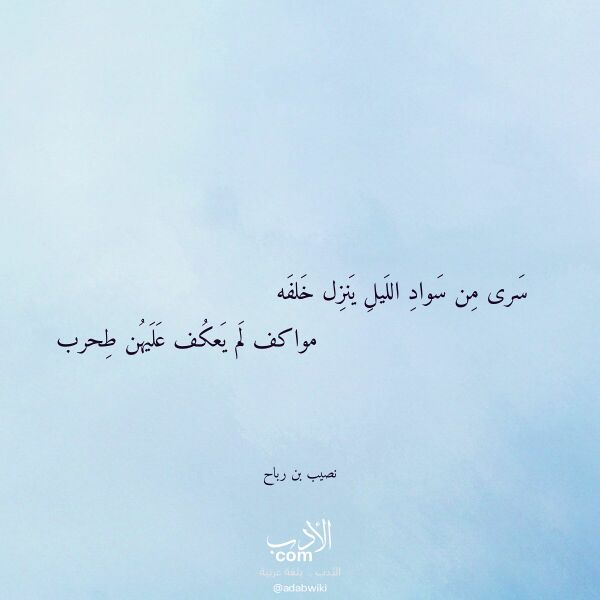 سَرى مِن سَوادِ اللَيلِ يَنزِل خَلفَه
مواكف لَم يَعكُف عَلَيهُن طِحرب
نصيب بن رباح
الأدب
com
الأدب .. بلغة عربية
@adabwiki